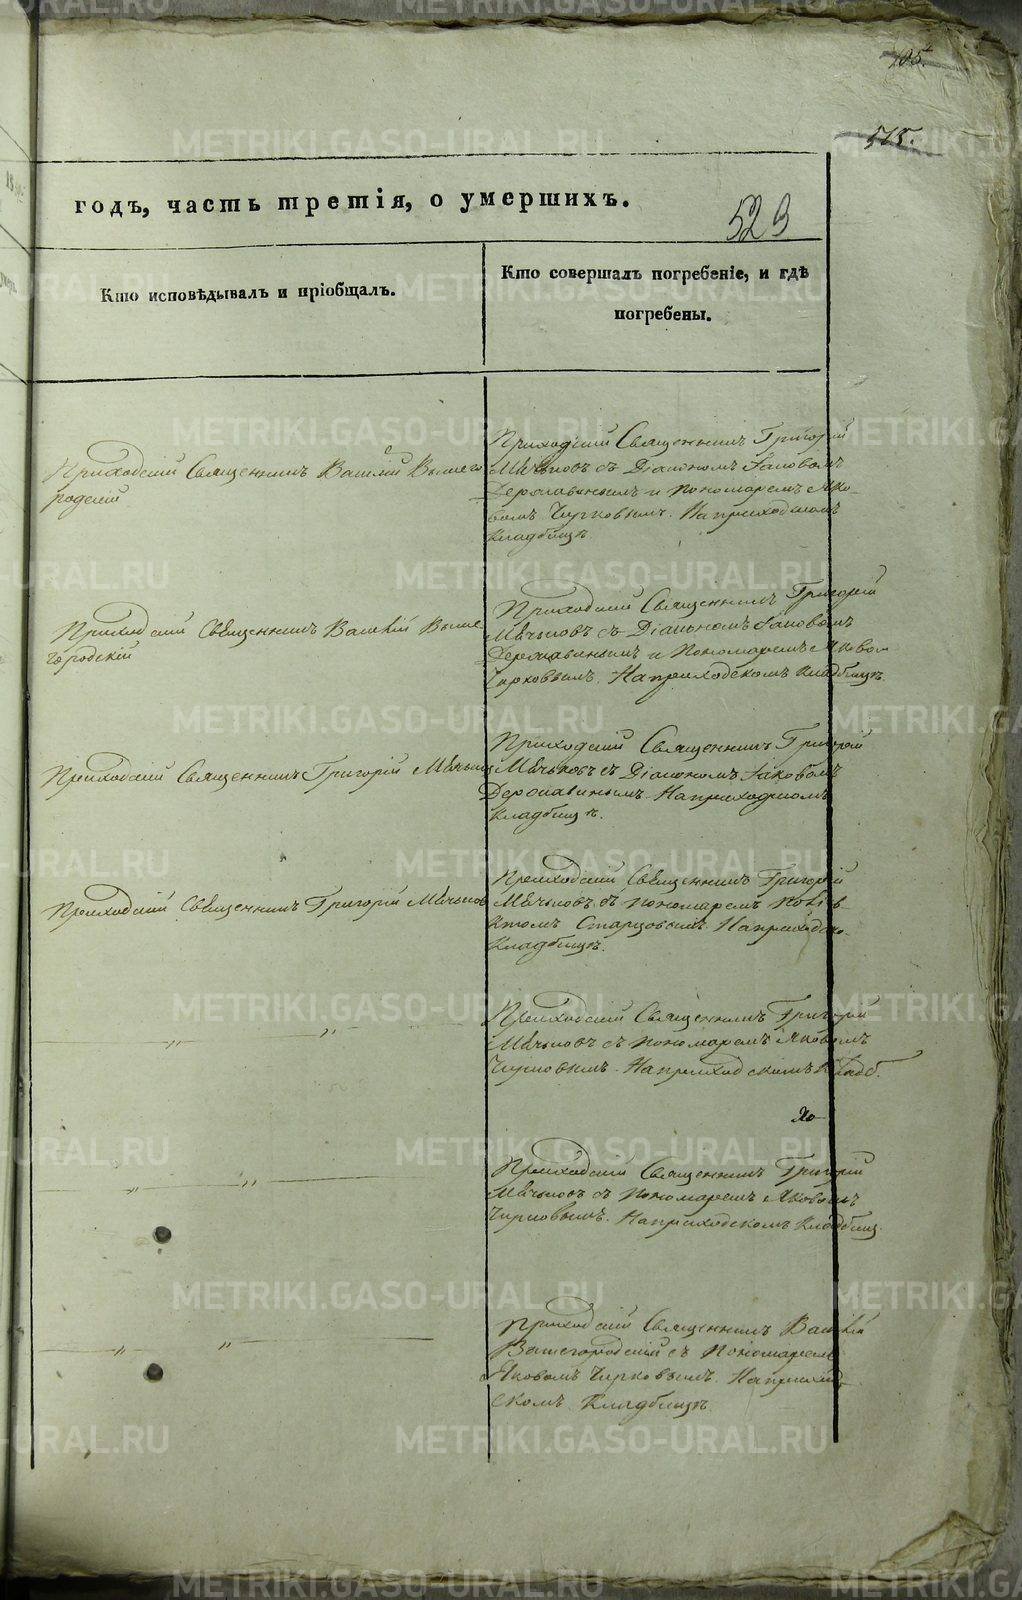 105.
515.
годъ, часть третія, о умершихъ.
523
Кто исповѣдывалъ и пріобщалъ.
Кто совершалъ погребеніе, и гдѣ
погребены.
Приходскій Священникъ Василій Вышего
родскій
Приходскій Священникъ Григорій
Мѣчьковъ съ Діакономъ Іаковомъ
Державинымъ и пономаремъ Яко-
вомъ Чирковымъ. На приходскомъ
Кладбищѣ.
Приходскій Священникъ Василій Выше
городскій
Приходскій Священникъ Григорій
Мѣчьковъ съ Діакономъ Іаковомъ
Державинымъ и Пономаремъ Яково
Чирковымъ. На приходскомъ Кладбищѣ.
Приходскій Священникъ Григорій
Приходскій Священникъ Григорій
Мѣчьковъ съ Діакономъ Іаковомъ
Державинымъ. На приходскомъ
Кладбищѣ.
Приходскій Священникъ Григорій Мѣчьков
Приходскій Священникъ Григорій
Мѣчьковъ съ пономаремъ
Старцовымъ. На приходско
Кладбищѣ.
—〃—〃
Приходскій Священникъ Григорій
Мѣчьковъ съ пономаремъ Яковомъ
Чирковымъ. На приходскомъ Кладб.
—〃—〃—
Приходскій Священникъ Григорій
Мѣчьковъ съ Пономаремъ Яковомъ
Чирковымъ. На приходскомъ Кладбищ.
—〃—〃—
Приходскій Священникъ Василій
Вышегородскій съ Пономаремъ
Яковомъ Чирковымъ. На приход
скомъ Кладбищѣ.
METRIKI.GASO-URAL.RU